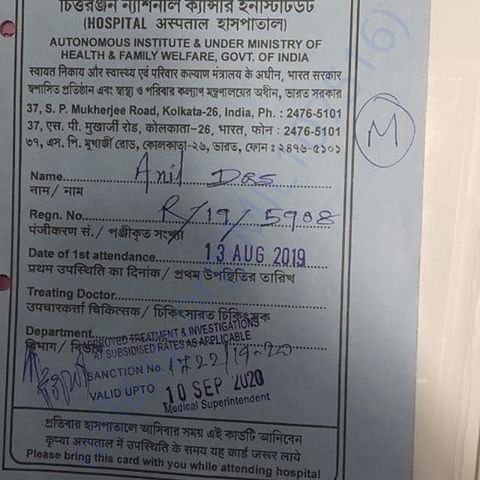 চিত্তরঞ্জন ন্যাশনাল ক্যান্সার ইনস্টিটিউট
(HOSPITAL अस्पताल হাসপাতাল)
AUTONOMOUS INSTITUTE & UNDER MINISTRY OF
HEALTH & FAMILY WELFARE, GOVT. OF INDIA
स्वायत्त निकाय और स्वास्थ्य एवं परिवार कल्याण मंत्रालय के अधीन, भारत सरकार
স্বশাসিত প্রতিষ্ঠান এবং স্বাস্থ্য ও পরিবার কল্যাণ মন্ত্রণালয়ের অধীন, ভারত সরকার
37, S. P. Mukherjee Road, Kolkata-26, India, Ph. : 2476-5101
37, एस. पी. मुखार्जी रोड, कोलकाता-26, भारत, फोन : 2476-5101
৩৭, এস. পি. মুখার্জী রোড, কোলকাতা-২৬, ভারত, ফোন : ২৪৭৬-৫১০১
M
Name Anil Das
नाम / নাম
Regn. No. R/19/5908
पंजीकरण सं. / পঞ্জীকৃত সংখ্যা
Date of 1st attendance 13 AUG 2019
प्रथम उपस्थिति का दिनांक / প্রথম উপস্থিতির তারিখ
Treating Doctor
उपचारकर्त्ता चिकित्सक / চিকিৎসারত চিকিৎসক
Department
विभाग / বিভাগ
APPROVED TREATMENT & INVESTIGATIONS
AT SUBSIDISED RATES AS APPLICABLE
SANCTION No.
VALID UPTO 10 SEP 2020
Medical Superintendent
প্রতিবার হাসপাতালে আসিবার সময় এই কার্ডটি আনিবেন
कृप्या अस्पताल में उपस्थिति के समय यह कार्ड जरूर लाये
Please bring this card with you while attending hospital